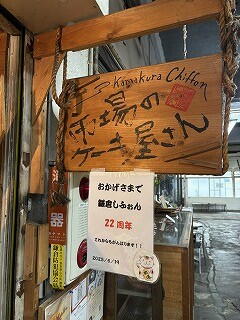 Kamakura Chiffon
市場の
ケーキ屋さん
おかげさまで
鎌倉しふぉん
22周年
これからもがんばります！！
2023/6/19
消火器